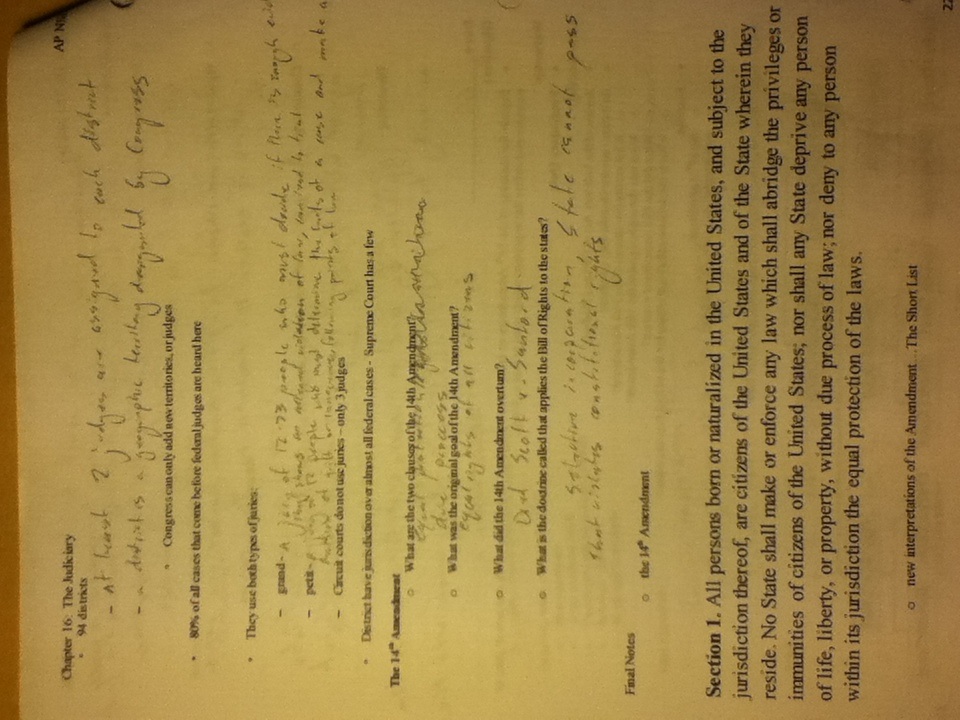 Chapter 16: The Judiciary
AP
• 94 districts
- At least 2 judges are assigned to each district
- a district is a geographic territory designated by Congress
• Congress can only add new territories, or judges
• 80% of all cases that come before federal judges are heard here
• They use both types of juries:
– grand - A jury of 12-23 people who must decide if there is enough
of law,
– petit - a jury of 12 people who must determine the facts of a case and make a
of guilt or following points of law
– Circuit courts do not use juries – only 3 judges
• District have jurisdiction over almost all federal cases - Supreme Court has a few
The 14th Amendment
o What are the two clauses of the 14th Amendment?
equal protection
due proccess
o What was the original goal of the 14th Amendment?
equal rights of all citizens
o What did the 14th Amendment overturn?
Dred Scott v. Sanford
o What is the doctrine called that applies the Bill of Rights to the states?
Selective incorporation, State cannot pass
that violates constitutional rights
Final Notes
o the 14th Amendment
Section 1. All persons born or naturalized in the United States, and subject to the
jurisdiction thereof, are citizens of the United States and of the State wherein they
reside. No State shall make or enforce any law which shall abridge the privileges or
immunities of citizens of the United States; nor shall any State deprive any person
of life, liberty, or property, without due process of law; nor deny to any person
within its jurisdiction the equal protection of the laws.
o new interpretations of the Amendment…The Short List
22